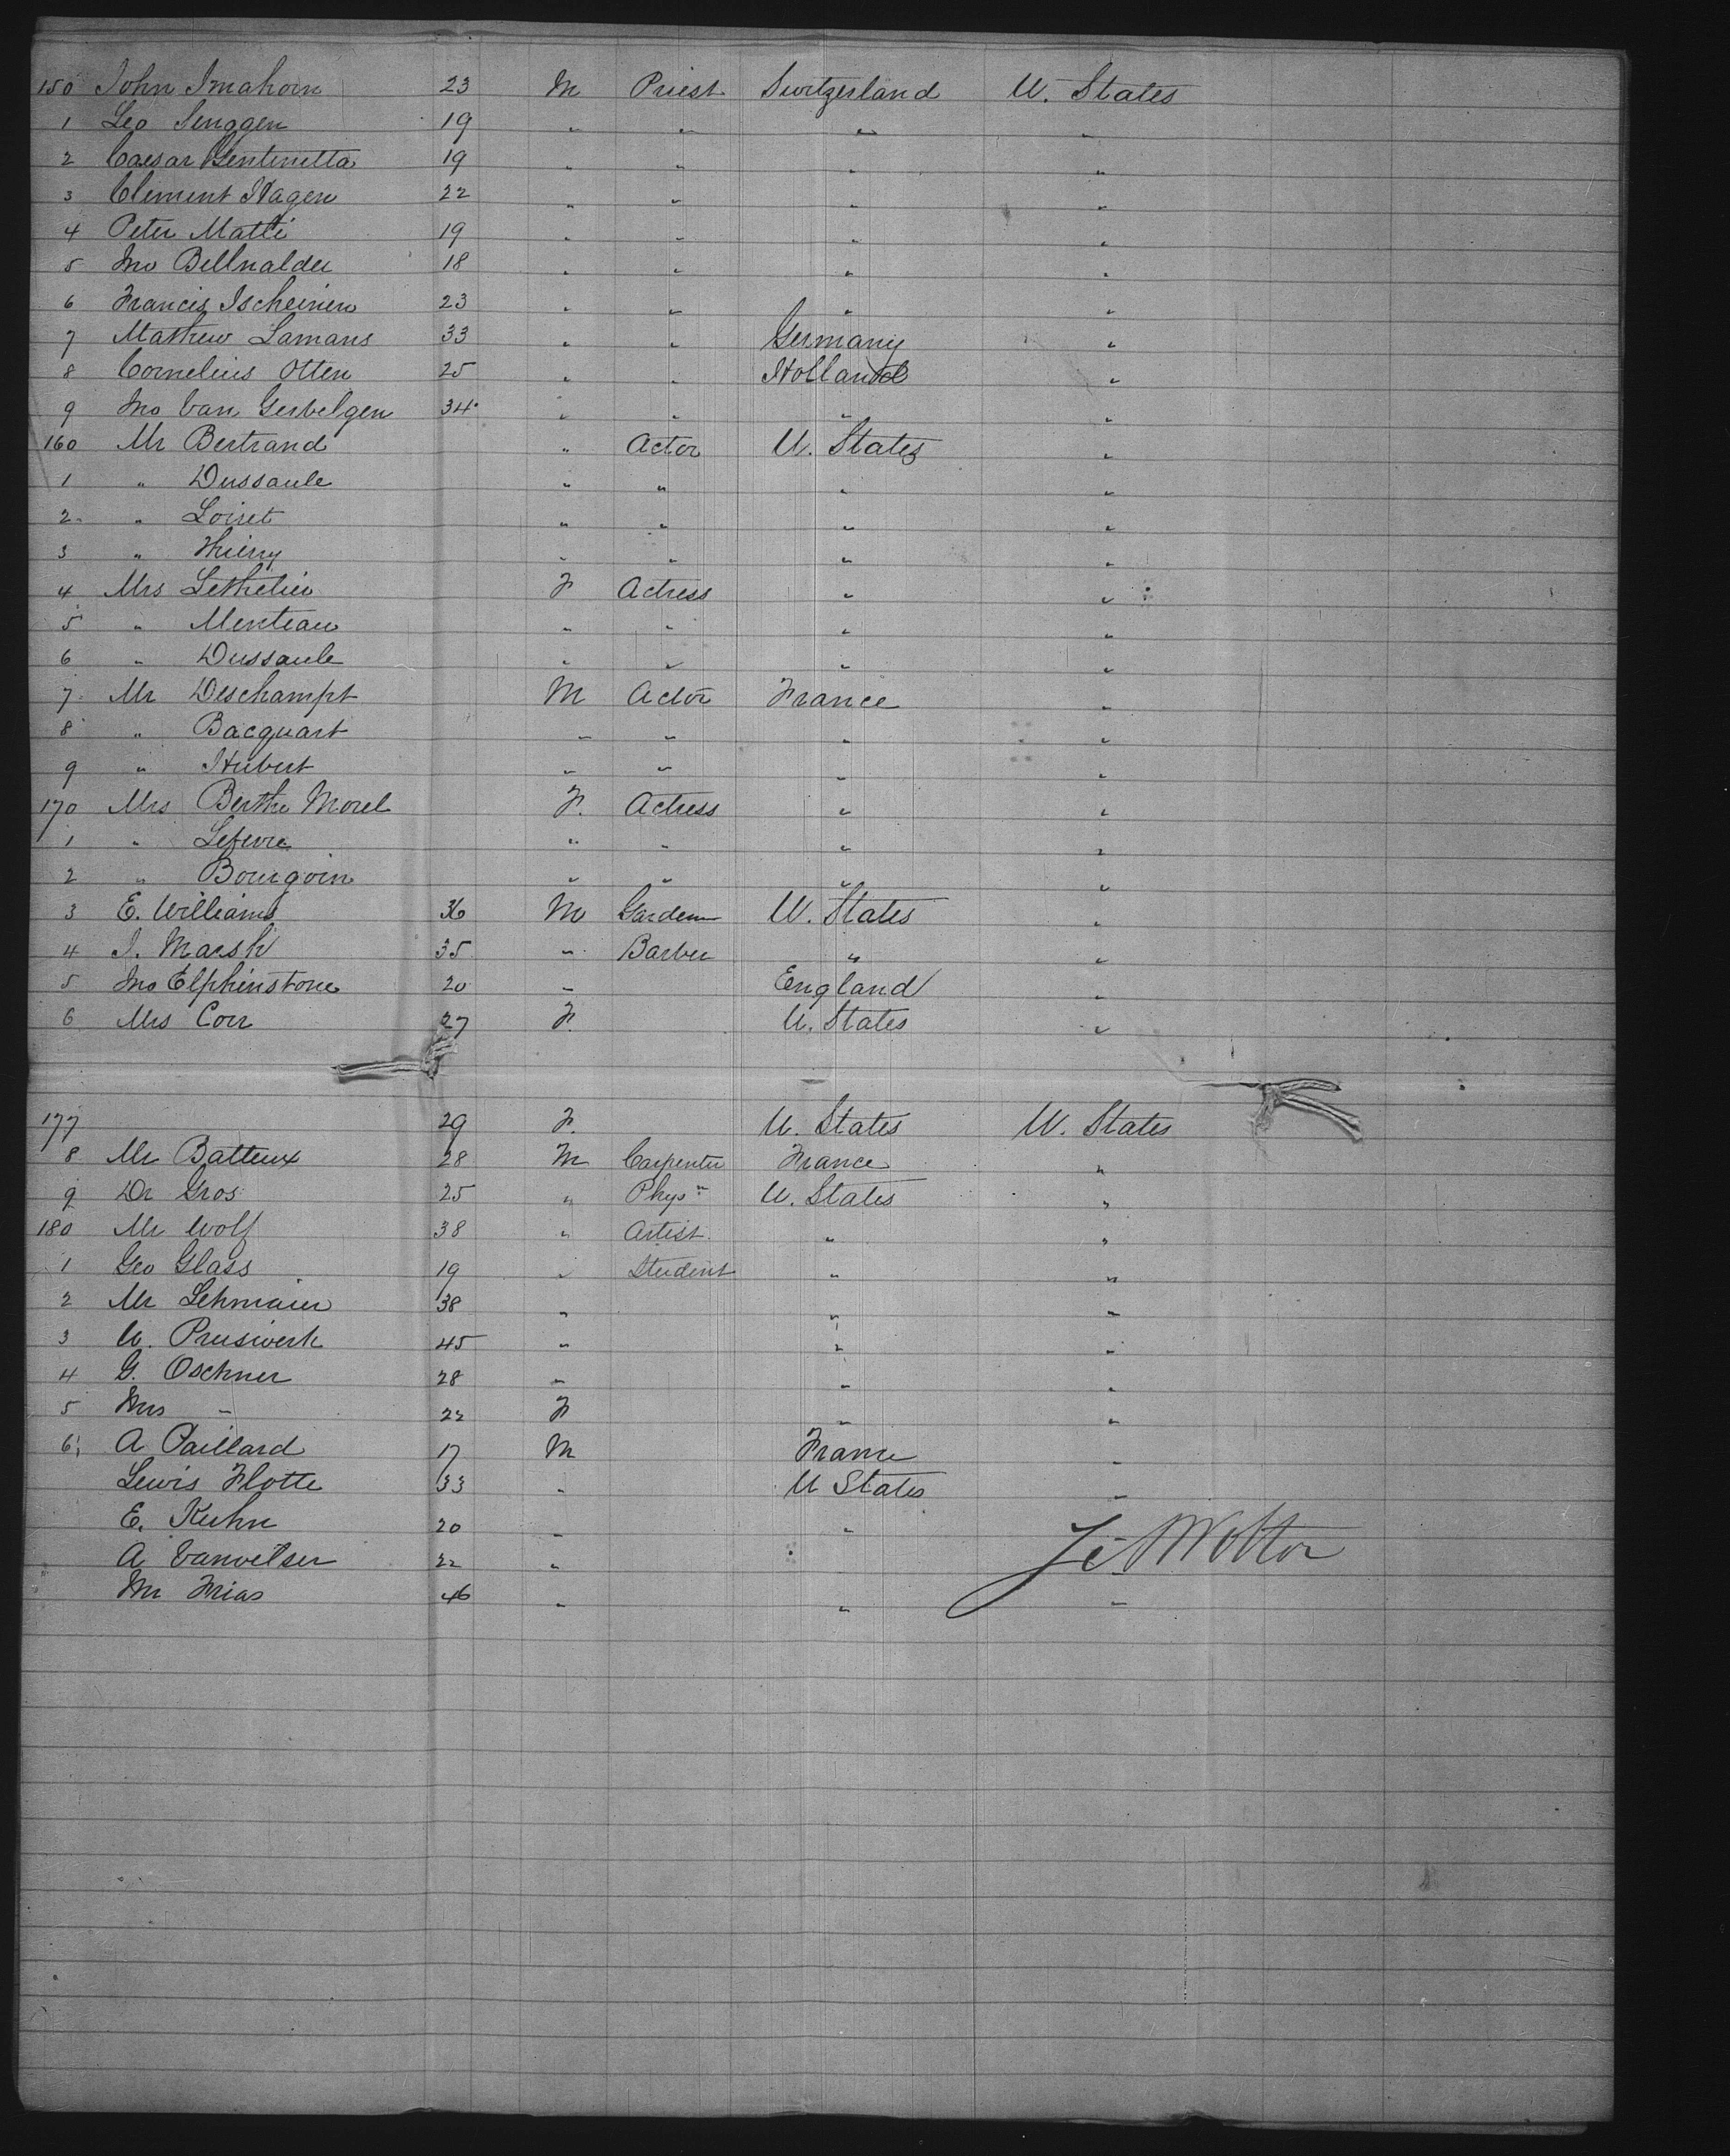 150 John Imahorn 23 M Priest Switzerland U. States
1 Leo Senggen 19 " " " "
2 Caesar Gentinetta 19 " " " "
3 Clement Hagen 22 " " " "
4 Peter Matti 19 " " " "
5 Jno Bellwalder 18 " " " "
6 Francis Tscheinen 23 " " " "
7 Mathew Lamans 33 " " Germany "
8 Cornelius Otten 25 " " Holland "
9 Jno Van Gerbelgen 34 " " " "
160 Mr Bertrand " Actor U. States "
1 " Dussaule " " " "
2 " Loiret " " " "
3 " Thierry " " " "
4 Mrs F Actress " "
5 " " " " "
6 " Dussaule " " " "
7 Mr Deschampt M Actor France "
8 " Bacquart " " " "
9 " Hubert " " " "
170 Mrs Berthe Morel F. Actress " "
1 " Lefevre " " " "
2 " Bourgoin " " " "
3 E. Williams 36 M Gardener U. States "
4 J. Marsh 35 " Barber " "
5 Jno Elphinstone 20 " England "
6 Mrs Corr 27 F. U. States "
177 29 F. U. States U. States
8 Mr Batteux 28 M Carpenter France "
9 Dr Gros 25 " Physn U. States "
180 Mr Wolf 38 " Artist " "
1 Geo Glass 19 " Student " "
2 Mr Lehmaier 38 " " "
3 U. Pruswerk 45 " " "
4 G. Oschner 28 " " "
5 Mrs " 22 F " "
6 A Paillard 17 M France "
Lewis Flotte 33 " U States "
E. Kuhn 20 " "
A Vanvelser 22 "
Mr Frias 46 " " "